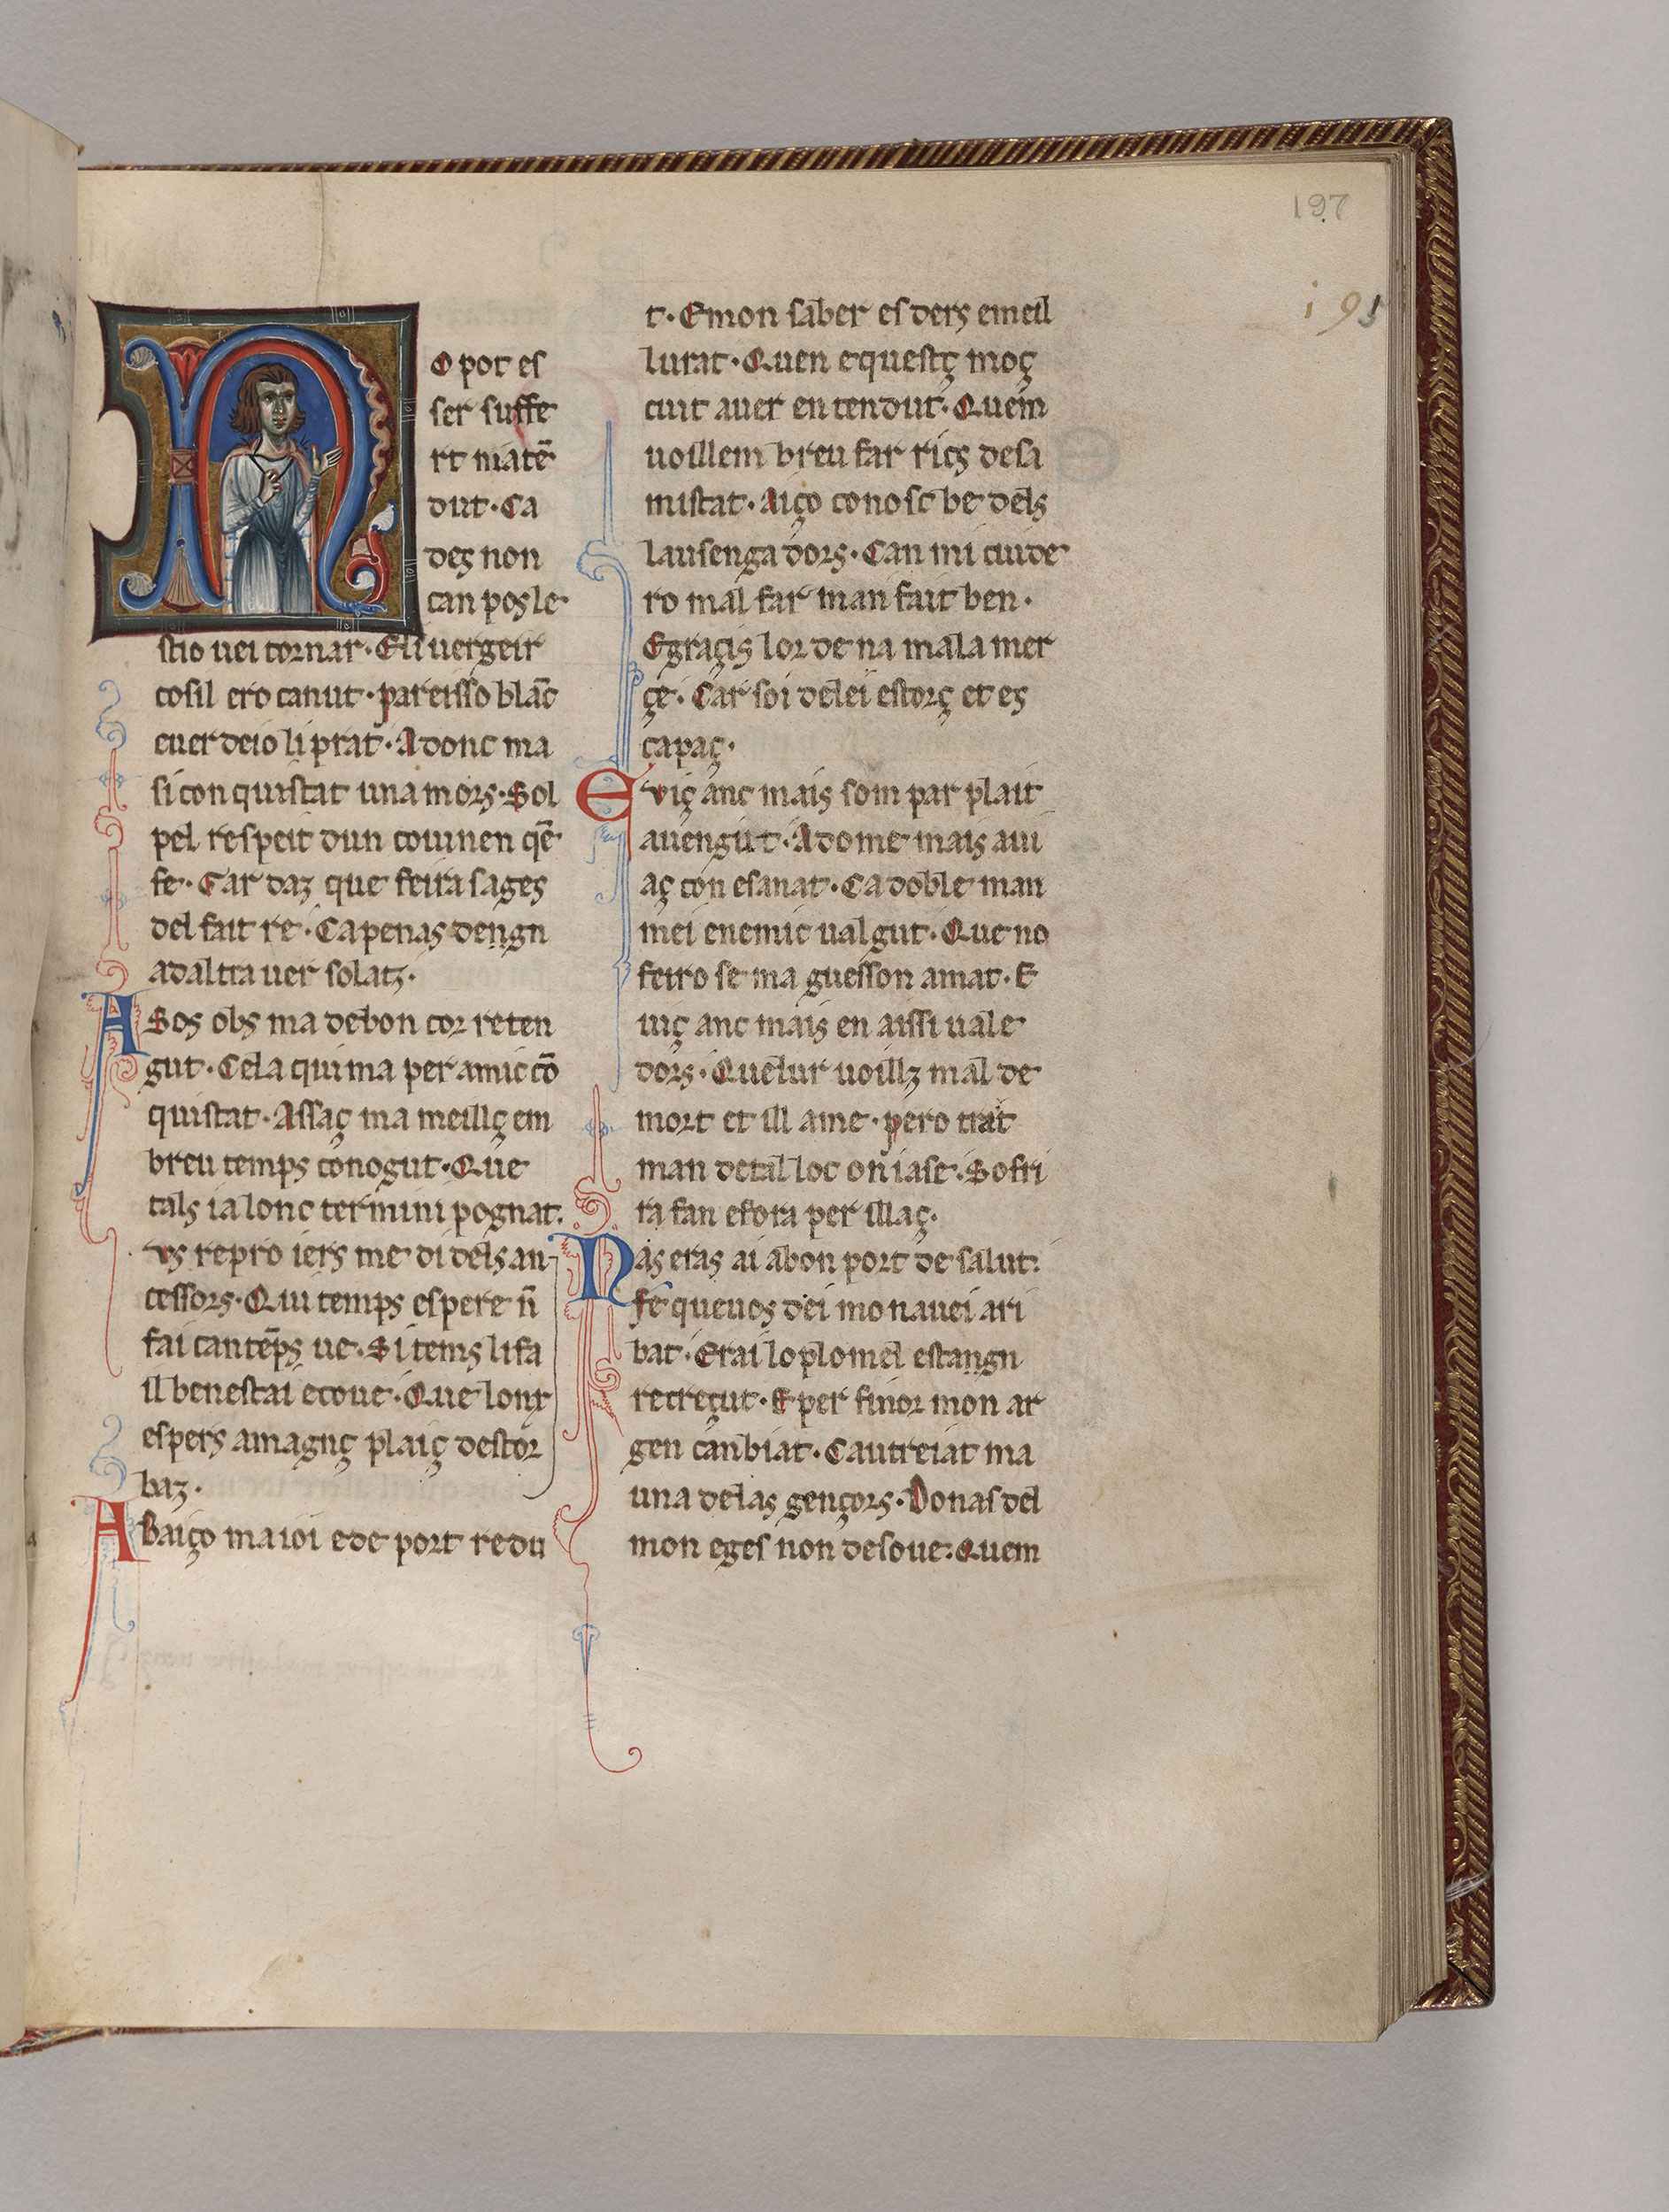 197
i 95
N
O pot es
ser suffe
rt niatē
dut. Ca
deç non
can pos le
stio uei tornar. Eli uergeir
cosil ero canut. pareisso blāc
euer deio li prat. Adonc ma
si con quistat una mors. Sol
pel respeit dun couinen qē
fe. Car daz que feira sages
del fait re. Ca penas dengn
ad altra uer solatz.
A Sos obs ma de bon cor reten
gut. Cela qui ma per amic cō
quistat. Assaç ma meillç em
breu temps conogut. Que
tals ia lonc termini pognat.
us repro iers me di dels an
cessors. Qui temps espere ñ
fai can tēps ue. Si tems li fa
il benestai ecoue. Que lonx
espers amagnç plaiç destor
baz.
A Baiço ma ioi e de port redu
t. E mon saber es ders emeil
lurat. Quen equestç moç
cuit auer en tendut. Quem
uoillem breu far rics desa
mistat. Aiço conosc be dels
lausenga dors. Can mi cuide
ro mal far man fait ben.
Egraçis lor de na mala mer
çe. Car soi de lei estorç et es
capaç.
E viç anc mais som par plait
auengut. Ado me mais aui
aç con esanat. Ca doble man
mei enemic ual gut. Que no
feiro se ma guesson amat. E
uiç anc mais en aissi uale
dors. Quelur uoillz mal de
mort et ill ame. pero trat
man de tal loc on iase. Sofri
ra fan efora per illaç.
N as eras ai a bon port de salut.
fe que uos dei mo nauei ari
bat. Erai lo plomel estangn
recreçut. E per finor mon ar
gen canbiat. Cautreiat ma
una de las gençors. Donas del
mon eges non desoue. Quem